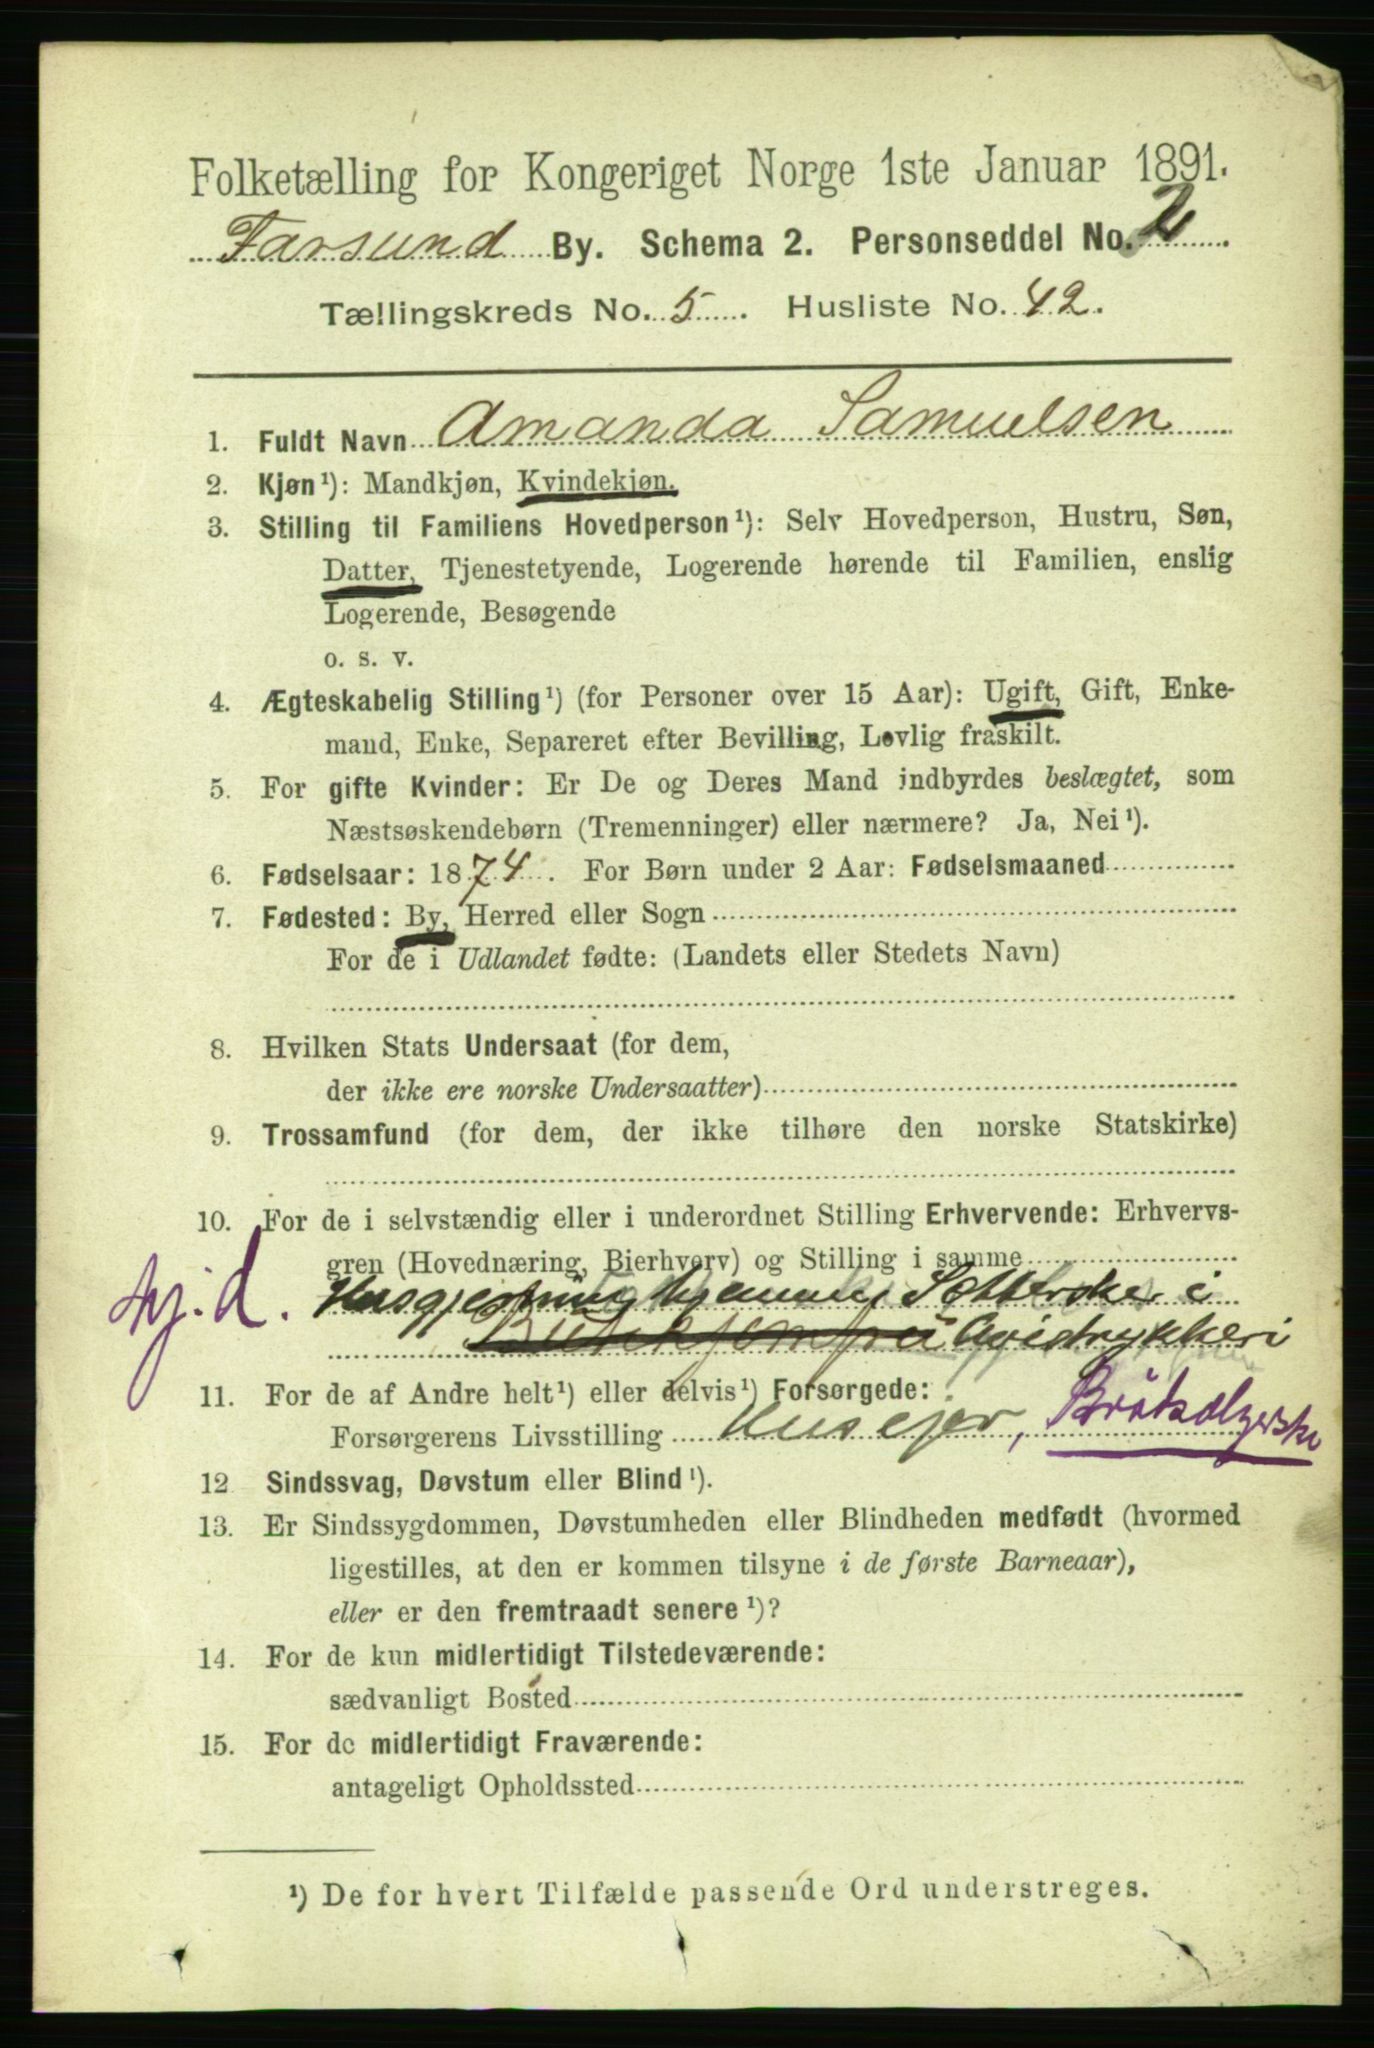 Folketælling for Kongeriget Norge 1ste Januar 1891.
Farsund By. Schema 2. Personseddel No. 2
Tællingskreds No. 5. Husliste No. 42.
1. Fuldt Navn Amanda Samuelsen
2. Kjøn¹): Mandkjøn, Kvindekjøn.
3. Stilling til Familiens Hovedperson¹): Selv Hovedperson, Hustru, Søn,
Datter, Tjenestetyende, Logerende hørende til Familien, enslig
Logerende, Besøgende
o. s. v.
4. Ægteskabelig Stilling¹) (for Personer over 15 Aar): Ugift, Gift, Enke-
mand, Enke, Separeret efter Bevilling, Lovlig fraskilt.
5. For gifte Kvinder: Er De og Deres Mand indbyrdes beslægtet, som
Næstsøskendebørn (Tremenninger) eller nærmere? Ja, Nei¹).
6. Fødselsaar: 1874. For Børn under 2 Aar: Fødselsmaaned
7. Fødested: By, Herred eller Sogn
For de i Udlandet fødte: (Landets eller Stedets Navn)
8. Hvilken Stats Undersaat (for dem,
der ikke ere norske Undersaatter)
9. Trossamfund (for dem, der ikke tilhøre den norske Statskirke)
10. For de i selvstændig eller i underordnet Stilling Erhvervende: Erhvervs-
gren (Hovednæring, Bierhverv) og Stilling i samme
hj. d. Husgjerning hjemme, Sætterske i
trykkeri
11. For de af Andre helt¹) eller delvis¹) Forsørgede:
Forsørgerens Livsstilling Huseier,
12 Sindssvag, Døvstum eller Blind¹).
13. Er Sindssygdommen, Døvstumheden eller Blindheden medfødt (hvormed
ligestilles, at den er kommen tilsyne i de første Barneaar),
eller er den fremtraadt senere¹)?
14. For de kun midlertidigt Tilstedeværende:
sædvanligt Bosted
15. For de midlertidigt Fraværende:
antageligt Opholdssted
¹) De for hvert Tilfælde passende Ord understreges.